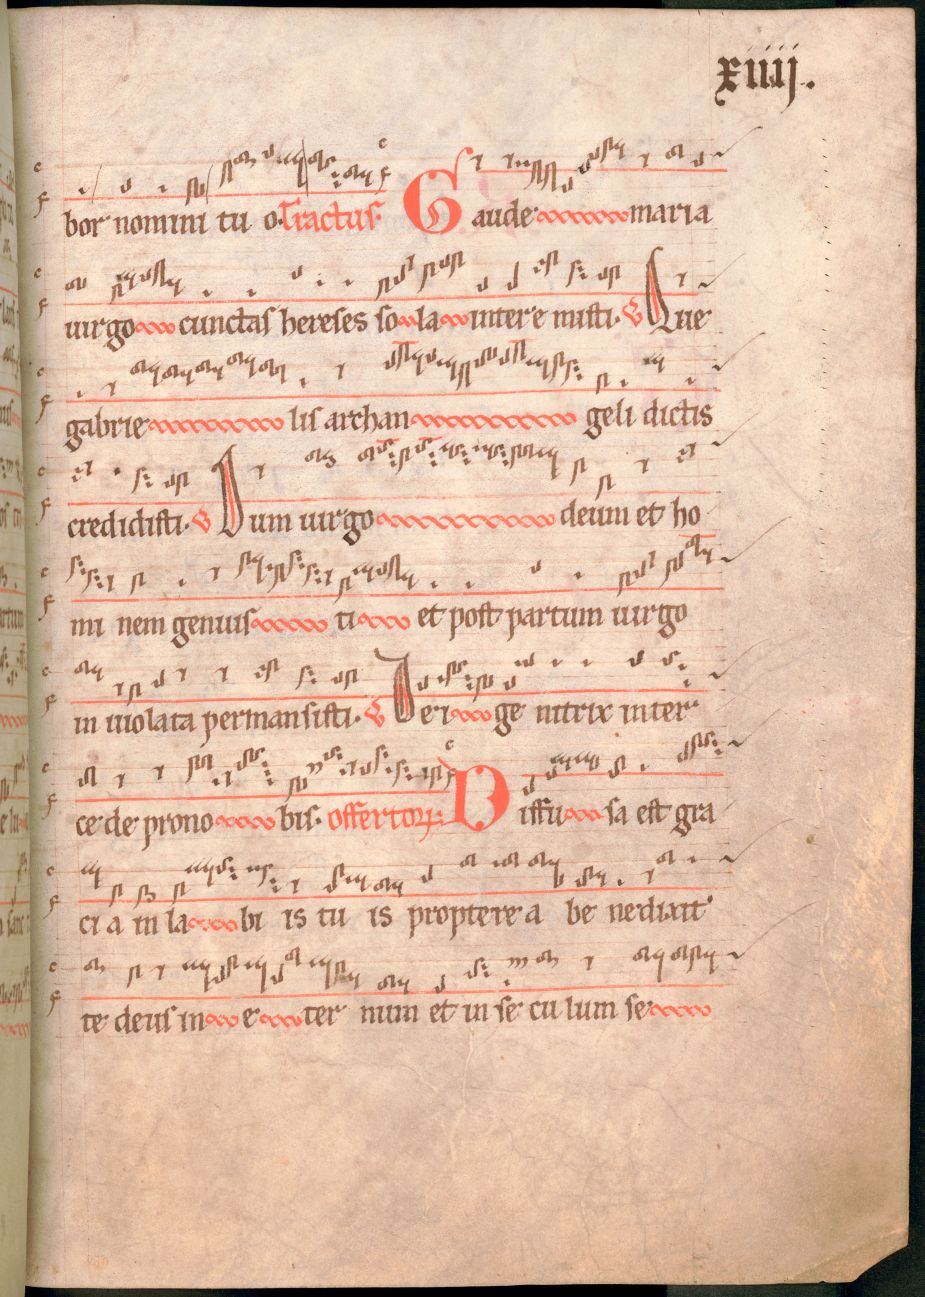 xiiij.
bor nomini tu o. Tractus. Gaude maria
uirgo cunctas hereses so la intere misti. V Que
gabrie lis archan geli dictis
credidisti. V Dum uirgo deum et ho
mi nem genuis ti et post partum uirgo
in uiolata permansisti. V Dei ge nitrix inter
ce de pro no bis. offertor. Diffu sa est gra
ci a in la bi is tu is propterea be nedixit
te deus in e ter num et in se cu lum se